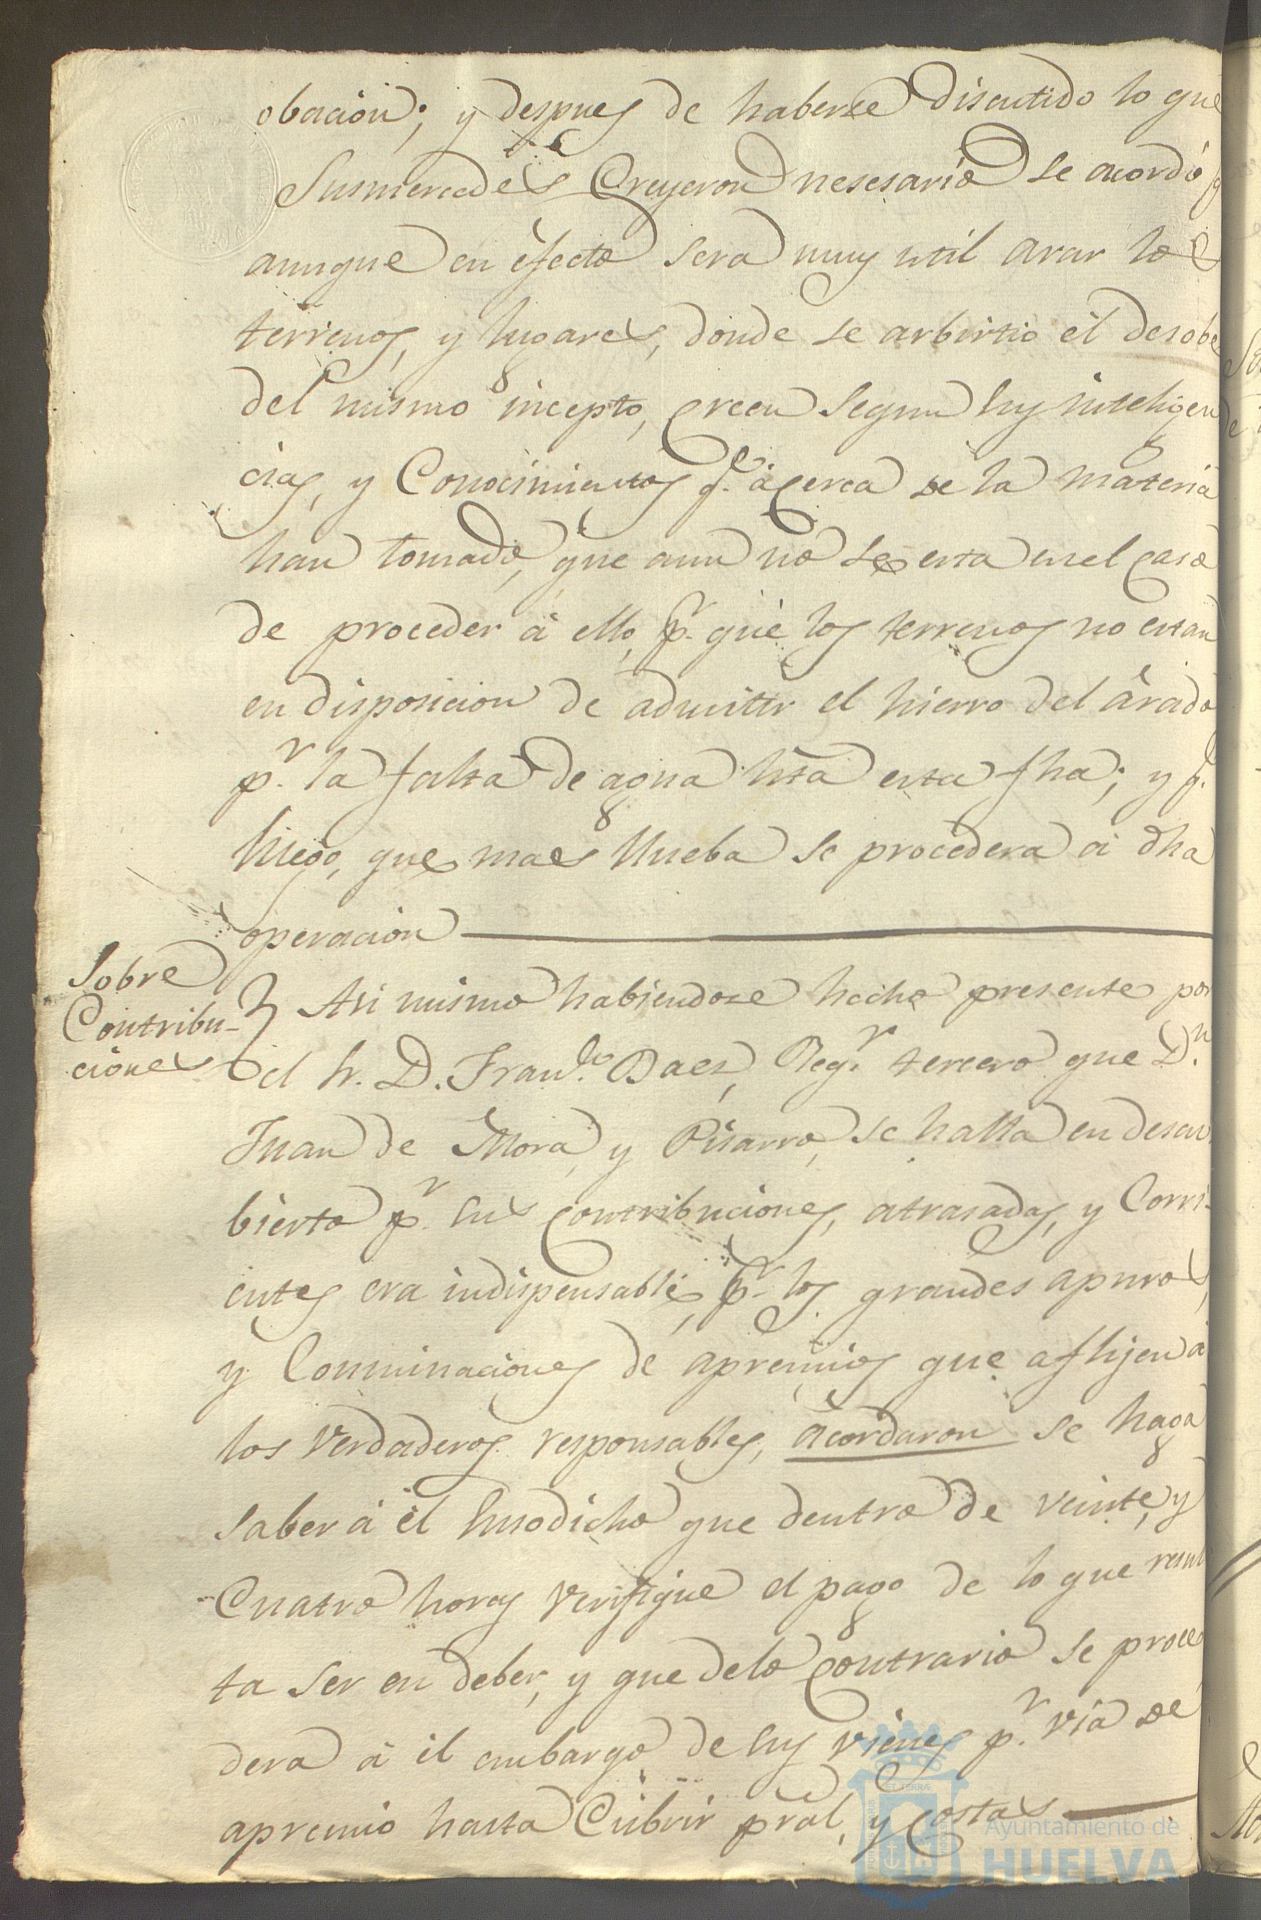 obacion; y despues de haberse discutido lo que
Susmercedes Creyeron nesesario se acordó q
aunque en efecto sera muy util arar los
terrenos, y lugares, donde se arbirtio él desobe
del mismo incepto, creen segun sus inteligen
cias, y Conocimientos q.e acerca de la materia
han tomado, que aun no se esta en el caso
de proceder á ello, p.r que los terrenos no estan
en disposicion de admitir el hierro del arado
p.r la falta de agua hta esta fha; y q.e
luego, que mas llueba se procedera á dha
operacion
Sobre
Contribu-
ciones
Asi mismo habiendose hecho presente por
el Sr. D. Fran.co Baes, Reg.r tercero que D.n
Juan de Mora, y Pisarro, se halla en descu
bierto p.r sus contribuciones, atrasadas, y Corri-
entes era indispensable, p.r los grandes apuros,
y Conminaciones de apremios que aflijen á
los verdaderos responsables, acordaron se haga
saber á él susodicho que dentro de veinte, y
Cuatro horas verifique el pago de lo que resul
ta ser en deber, y que delo contrario se proce
dera á él embargo de sus vienes p.r via de
apremio hasta Cubrir pral, y costas
Ayuntamiento de
HUELVA